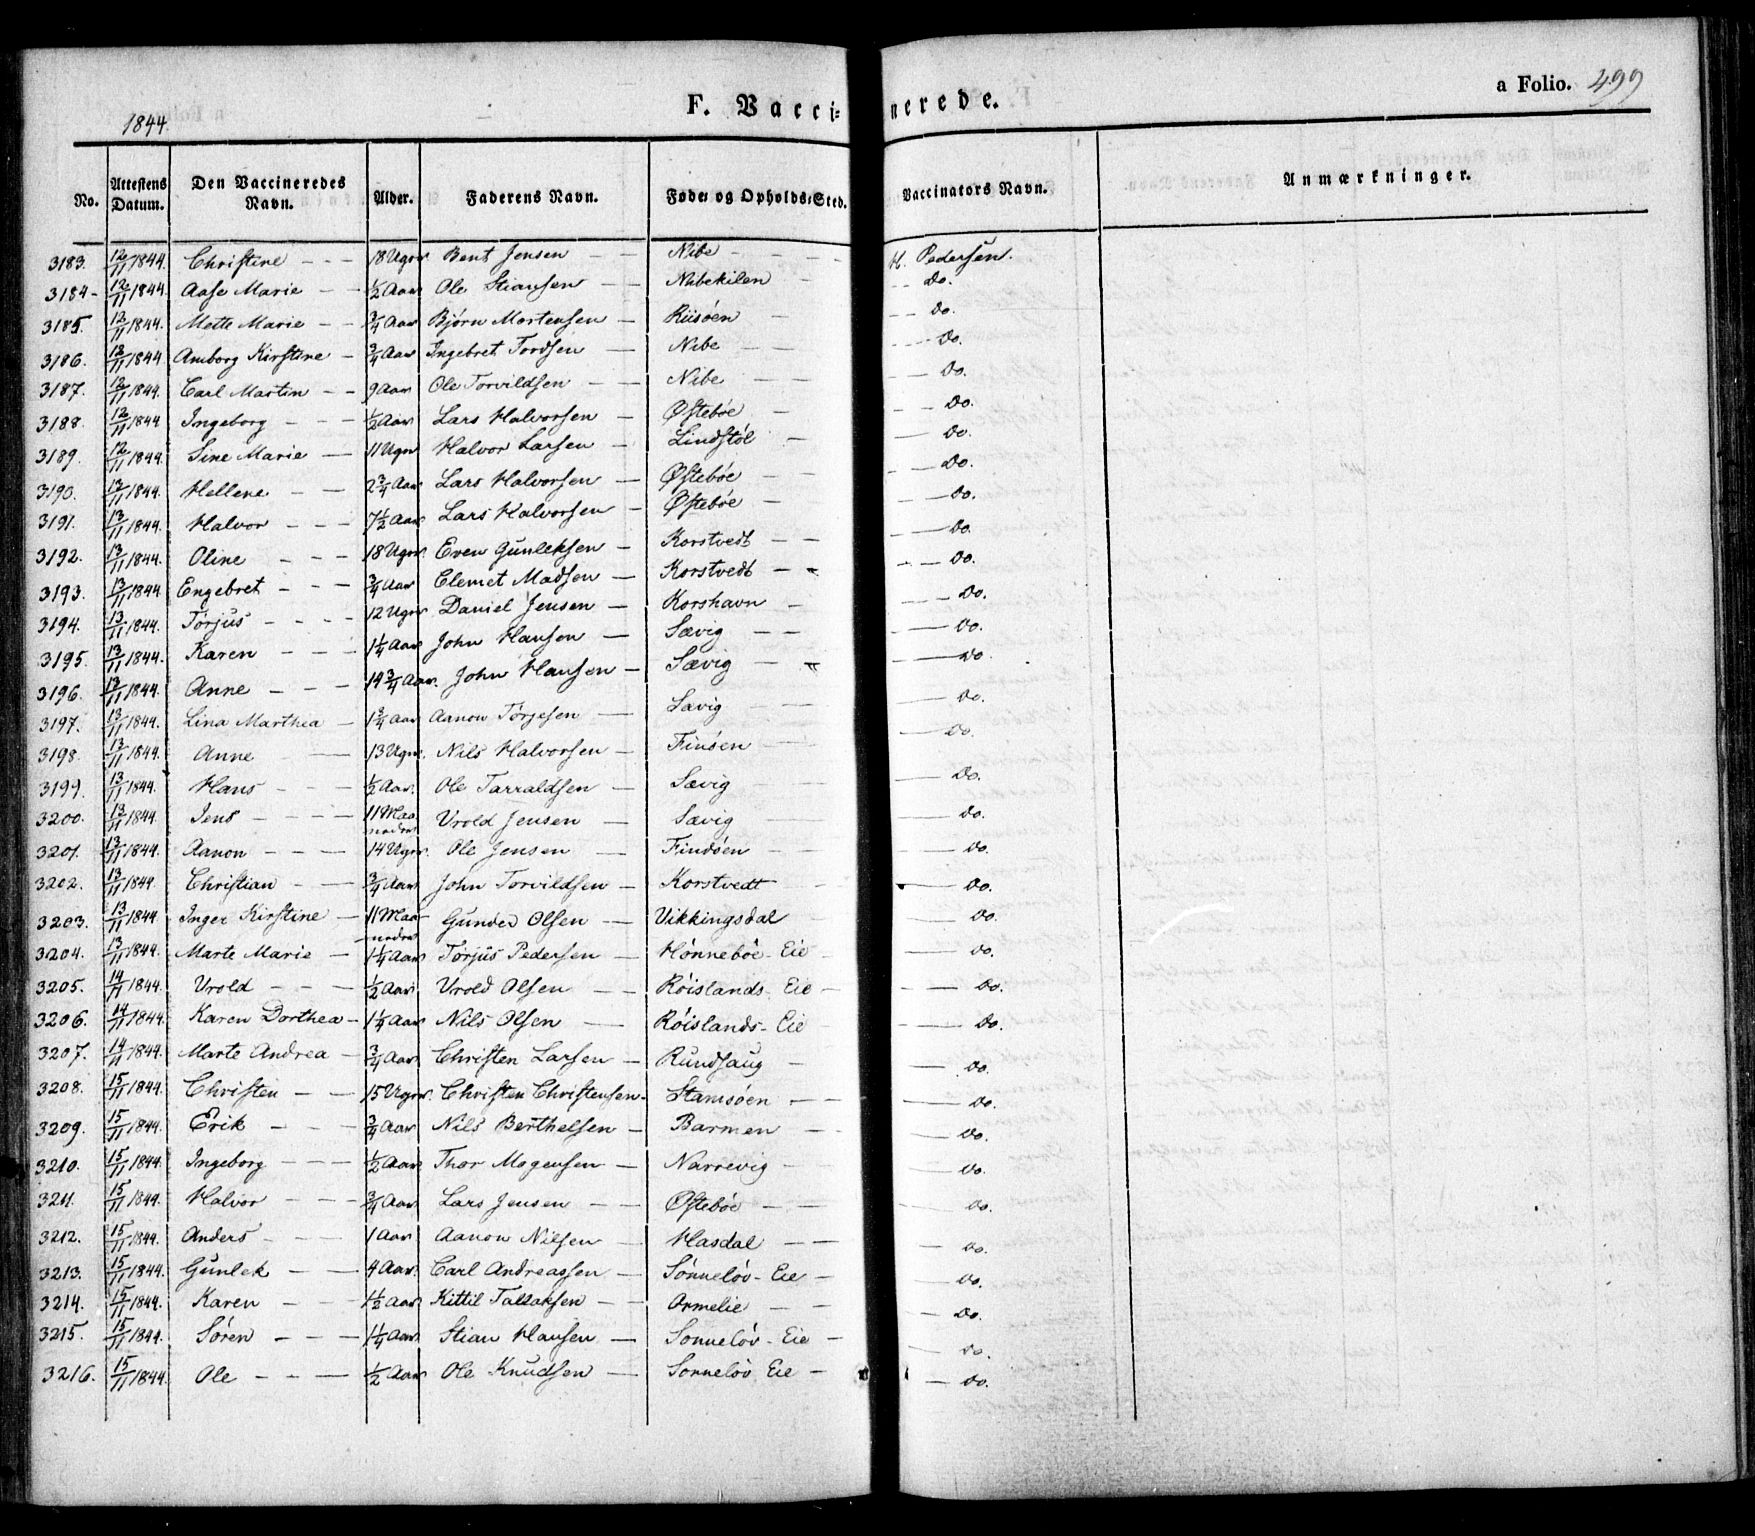 a Folio. 499
1844.
F. Vaccinerede.
No. | Attestens Datum. | Den Vaccineredes Navn. | Alder. | Faderens Navn. | Føde= og Opholds=Sted. | Vaccinators Navn. | Anmærkninger.
3183. 12/11 1844. Christine — — 18 Uger Bent Jensen — — Nibe — — H. Pedersen.
3184 - 12/11 1844. Aase Marie — — 1/2 Aar Ole Stiansen — — Nibekilen — — Do.
3185. 12/11 1844. Mette Marie — — 3/4 Aar Bjørn Mortensen — Riisøen — — Do.
3186. 12/11 1844 Amborg Kirstine — 3/4 Aar Ingebret Tordsen — Nibe — — Do.
3187. 12/11 1844. Carl Martin — — 9 Aar Ole Torvildsen — — Nibe — — Do.
3188. 12/11 1844 Ingeborg — — — 1/2 Aar Lars Halvorsen — Østebøe — Do.
3189. 12/11 1844. Sine Marie — — 11 Uger Halvor Larsen — Lindstøl — Do.
3190. 13/11 1844. Hellene — — 2 3/4 Aar Lars Halvorsen — Østebøe — Do.
3191. 13/11 1844. Halvor — — — 7 1/2 Aar Lars Halvorsen — Østebøe — Do.
3192. 13/11 1844. Oline — — — 18 Uger. Even Gunleksen — Korstvedt — — Do.
3193. 13/11 1844 Engebret — — 3/4 Aar Clemet Madsen — Korstvedt — — Do.
3194. 13/11 1844. Tørjus — — — — 12 Uger Daniel Jensen — Korshavn — Do.
3195. 13/11 1844. Karen — — — 1 1/4 Aar John Hansen — Sævig — — Do.
3196. 13/11 1844. Anne — — — 14 3/4 Aar. John Hansen — Sævig — Do.
3197. 13/11 1844. Lina Marthea — 1 3/4 Aar Aanon Tørjesen — Sævig — — Do.
3198. 13/11 1844. Anne — — 13 Uger. Nils Halvorsen — Finsøen — — Do.
3199. 13/11 1844. Hans — — — 1/2 Aar. Ole Tarraldsen — Sævig — Do.
3200. 13/11 1844. Jens — — — — 11 Maaneder Vrold Jensen — Sævig — Do.
3201. 13/11 1844. Aanon — — — 14 Uger. Ole Jensen — Findøen — — Do.
3202. 13/11 1844. Christian — — — 3/4 Aar John Torvildsen — Korstvedt — Do.
3203. 13/11 1844. Inger Kirstine — 11 Maaneder Gunder Olsen — Vikkingsdal Do.
3204. 13/11 1844. Marte Marie — 1 1/4 Aar Tørjus Pedersen — Hønnebøe - Eie — Do.
3205. 14/11 1844. Vrold — — — 1/2 Aar Vrold Olsen — — Røislands - Eie — Do.
3206. 14/11 1844. Karen Dorthea — 1 1/4 Aar Nils Olsen — Røislands - Eie — Do.
3207. 14/11 1844. Marte Andrea — 3/4 Aar Christen Larsen — Rundhaug — Do.
3208. 15/11 1844. Christen — — 15 Uger. Christen Christensen - Stamsøen — — Do.
3209. 15/11 1844. Erik — — — 3/4 Aar Nils Berthelsen — Barmen — — Do.
3210. 15/11 1844. Ingeborg — — — 1/2 Aar Thor Mogensen — Narrevig — Do.
3211. 15/11 1844. Halvor — — — 3/4 Aar Lars Jensen — — Østebøe — — Do.
3212. 15/11 1844. Anders — — — 1 Aar Aanon Nilsen — Hasdal — — Do.
3213. 15/11 1844. Gunlek — — 4 Aar. Carl Andreassen — Sønneløv - Eie — Do.
3214. 15/11 1844. Karen — — — 1 1/2 Aar Kittil Tallaksen — — Ormelie — — Do.
3215. 15/11 1844. Søren — — — 1 1/4 Aar Stian Hansen — Sonneløv - Eie — Do.
3216. 15/11 1844 Ole — — — 1/2 Aar Ole Knudsen — Sonneløv Eie — Do.